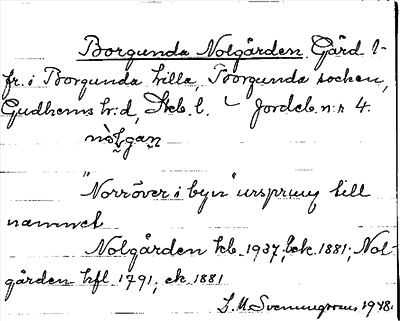 Borgunda Nolgården. Gård 1-
fr. i Borgunda killa, Borgunda socken,
Gudhems h:d, Skb. l. Jordeb. n:r 4.
nòlgan
"Norröver i byn" ursprung till
namnet
Nolgården hb. 1937; ek. 1881; Nol-
gården hfl 1791, ek 1881
1948.